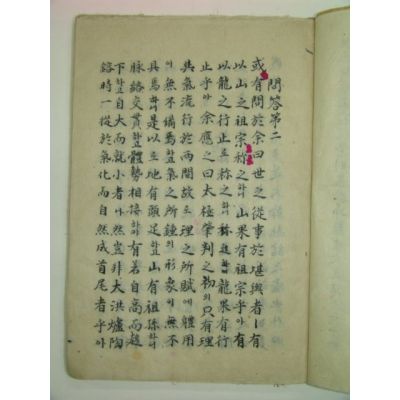 問答第二
或有問於余曰世之從事於堪輿者ㅣ有
以山之祖宗稱之하니山果有祖宗乎아有
以龍之行止로稱之하니龍果有行
止乎아余應之曰太極肇判之初의只有理
與氣流行於兩間故로理之所賦에體用
이無不備焉하고氣之所鍾의形象이無不
具焉하니是以로地有頭足하고山有祖孫하며
脉絡交貫하고體勢相接하야有若自高而趨
下하고自大而就小者ㅣ나然豈非大洪爐陶
鎔時一從於氣化而自然成首尾者乎아